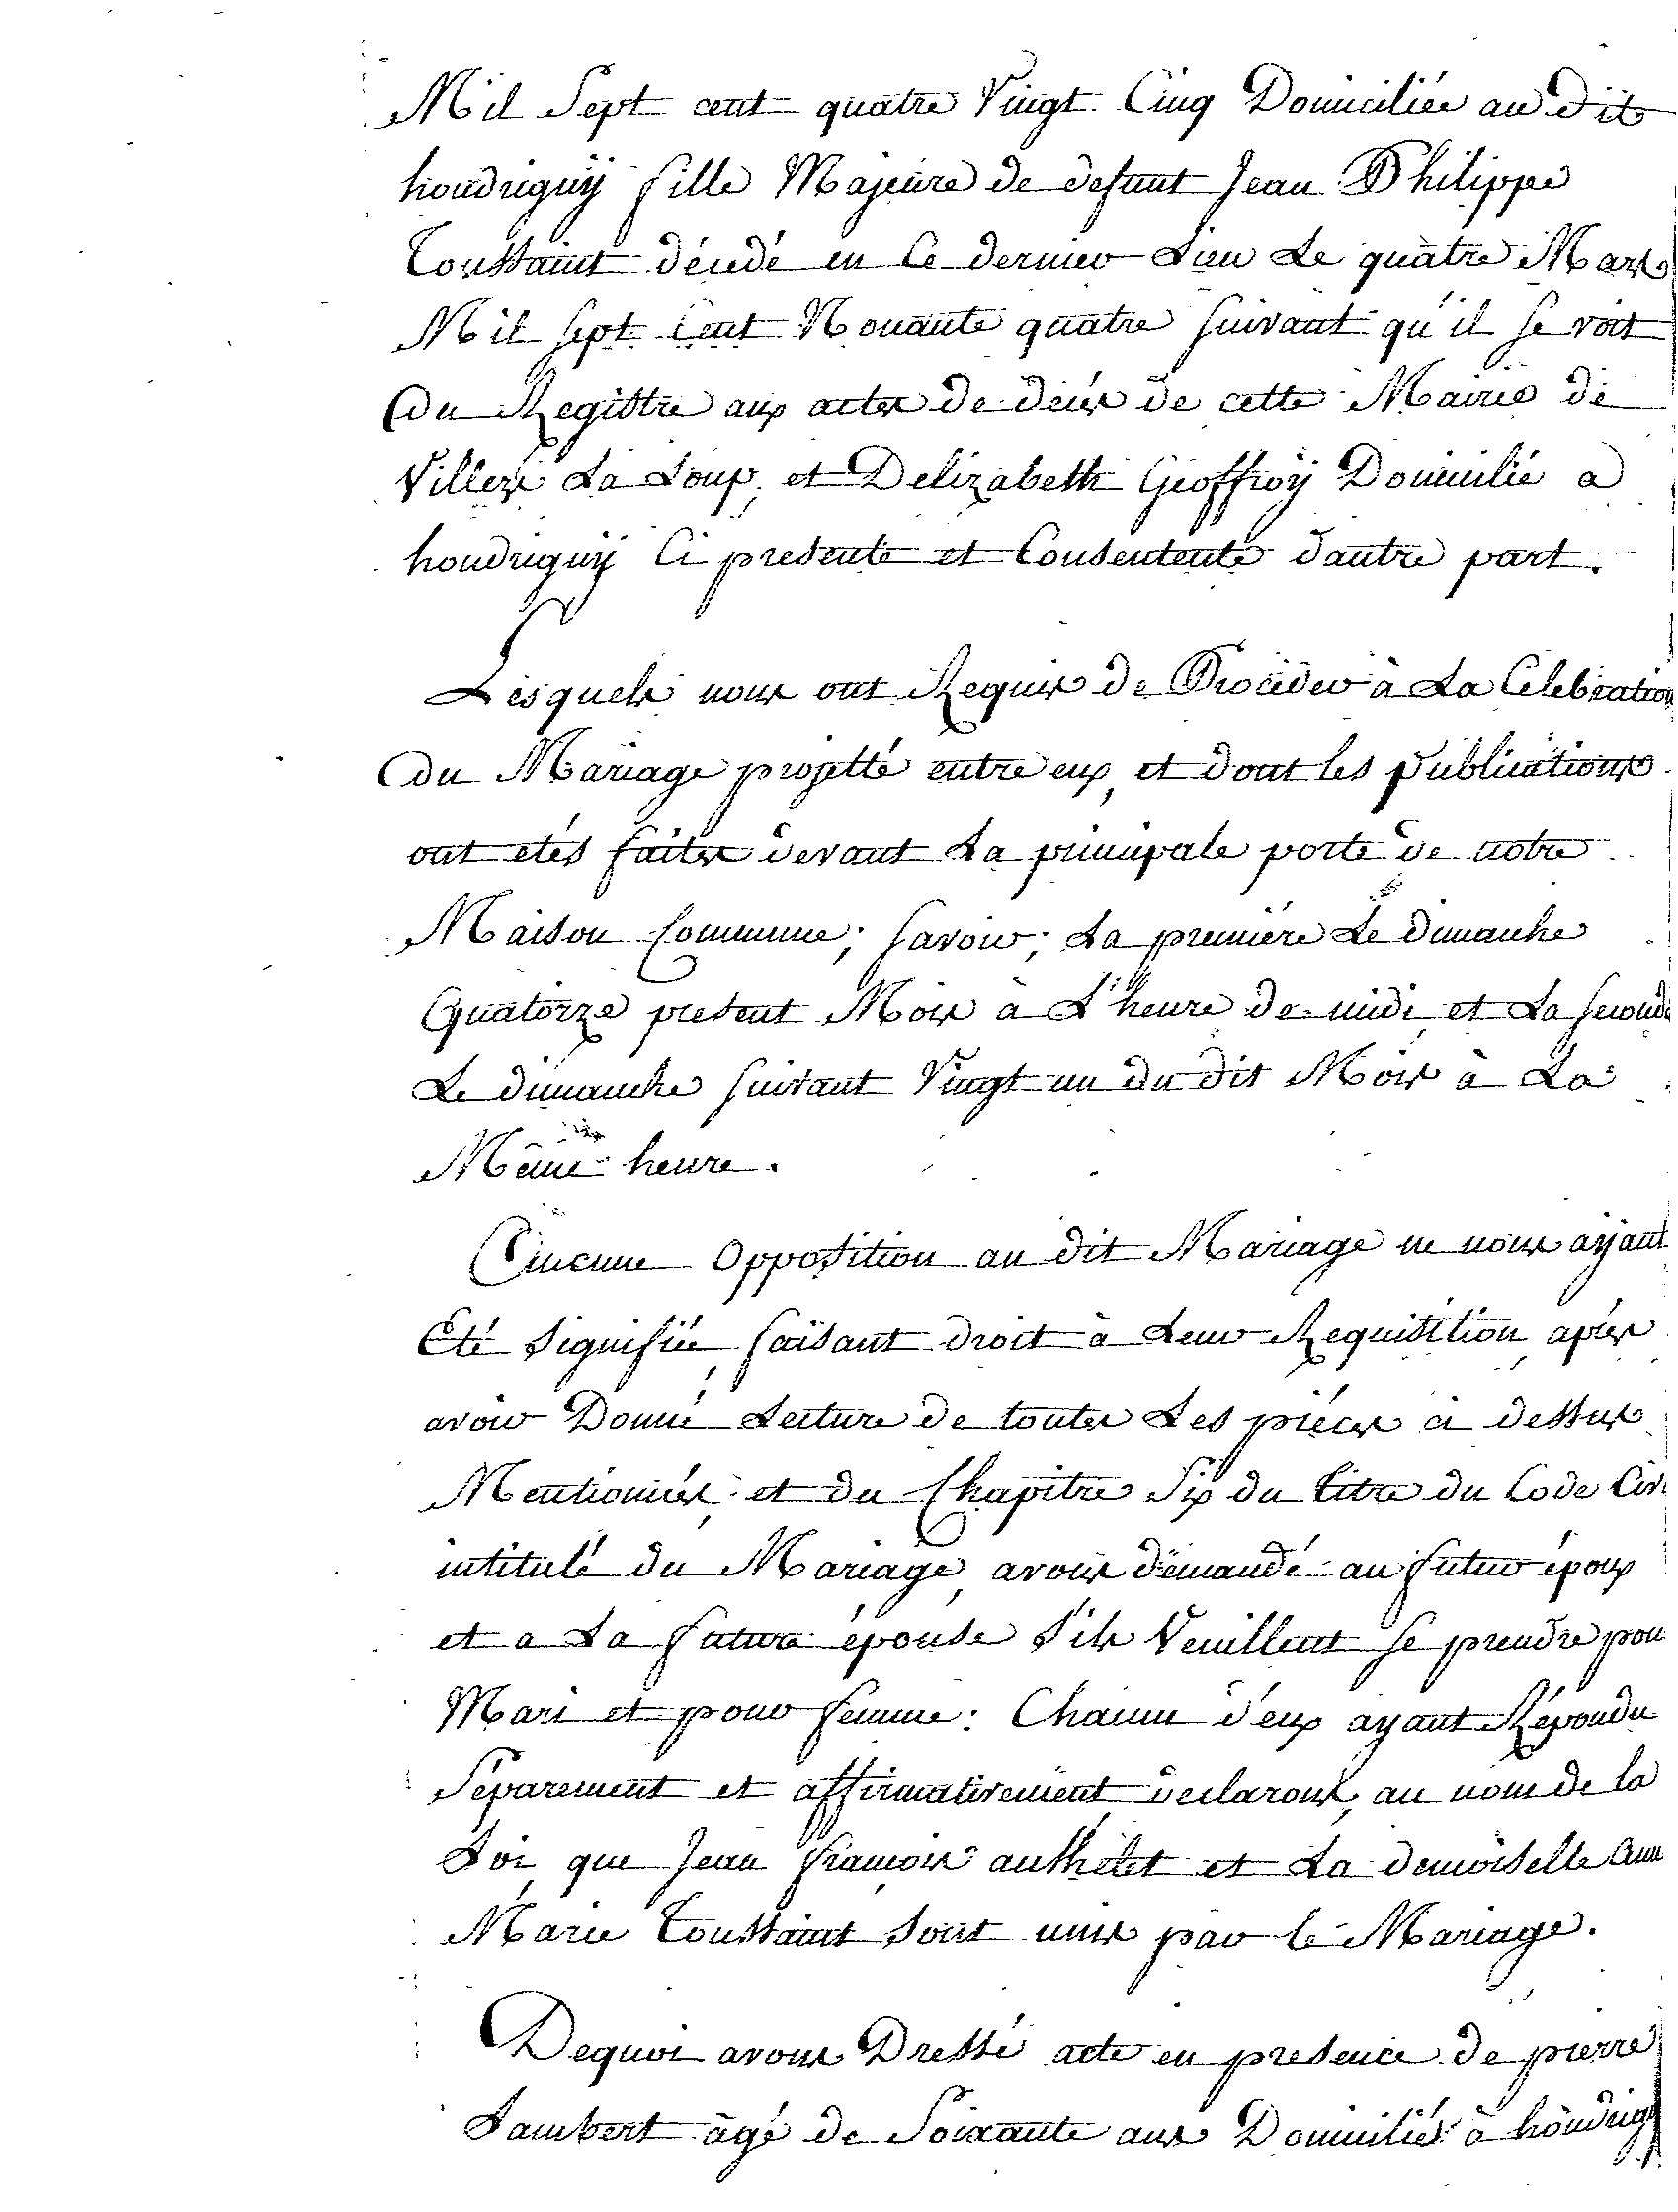 Mil Sept cent quatre Vingt Cinq Domiciliée au Dit
houdriguÿ fille Majeure de defunt Jean Philippe
Toussaint décedé en Ce dernier Lieu Le quatre Mars
Mil Sept Cent Nonante quatre Suivant qu'il Se voit
du Registre aux actes de decés de cette Mairie de
Villers La Loup, et Delizabeth Geoffroÿ Domicilié a
houdriguÿ Ci presente et Consentente d'autre part.
Lesquels nous ont Requis de Proceder à La Celebration
du Mariage projetté entre eux, et dont les publications
ont etés faites devant La principale porte de notre
Maison Commune; Savoir; La premiére Le dimanche
Quatorze present Mois à L'heure de midi, et La Seconde
Le dimanche Suivant Vingt un du dit Mois à La
Même heure.
Aucune Opposition au dit Mariage ne nous aÿant
Eté Signifiée, faisant droit à Leur Requisition, aprés
avoir Donné Lecture de toutes Les piéces ci dessus
Mentionnées, et du Chapitre Six du titre du Code Civ
intitulé du Mariage, avons demandé au futur époux
et a La future épouse S'ils Veuillent Se prendre pou
Mari et pour femme: Chacun d'eux ayant Répondu
Séparement et affirmativement, declarons, au nom de la
Loi, que Jean François authelet et La demoiselle ann
Marie Toussaint Sont unis par le Mariage.
Dequoi avons Dressé acte en presence de pierre
Lambert âgé de Soixante ans Domicilié à houdrig